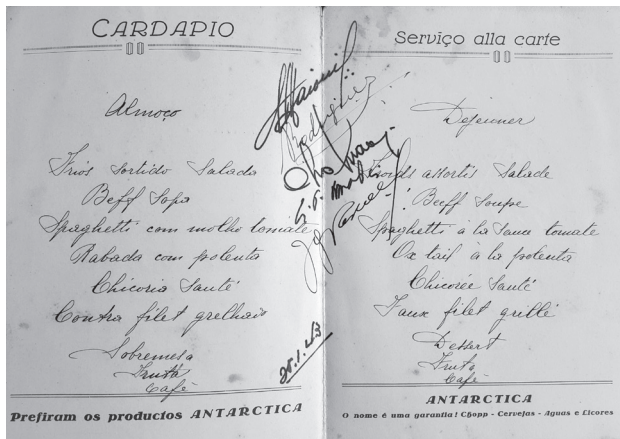 CARDAPIO
Almoço
Frios sortido Salada
Beff Sopa
Spaghetti com molho tomate
Rabada com polenta
Chicoria Sauté
Contra filet grelhado
Sobremesa
Fruta
Café
Prefiram os productos ANTARCTICA
Rodrigues
Serviço alla carte
Dejeuner
Froids assortis Salade
Beeff Soupe
Spaghetti à la sauce tomate
Ox tail à la polenta
Chicorée Sauté
Faux filet grillé
Dessert
Fruto
Café
ANTARCTICA
O nome é uma garantia! Chopp - Cervejas - Aguas e Licores